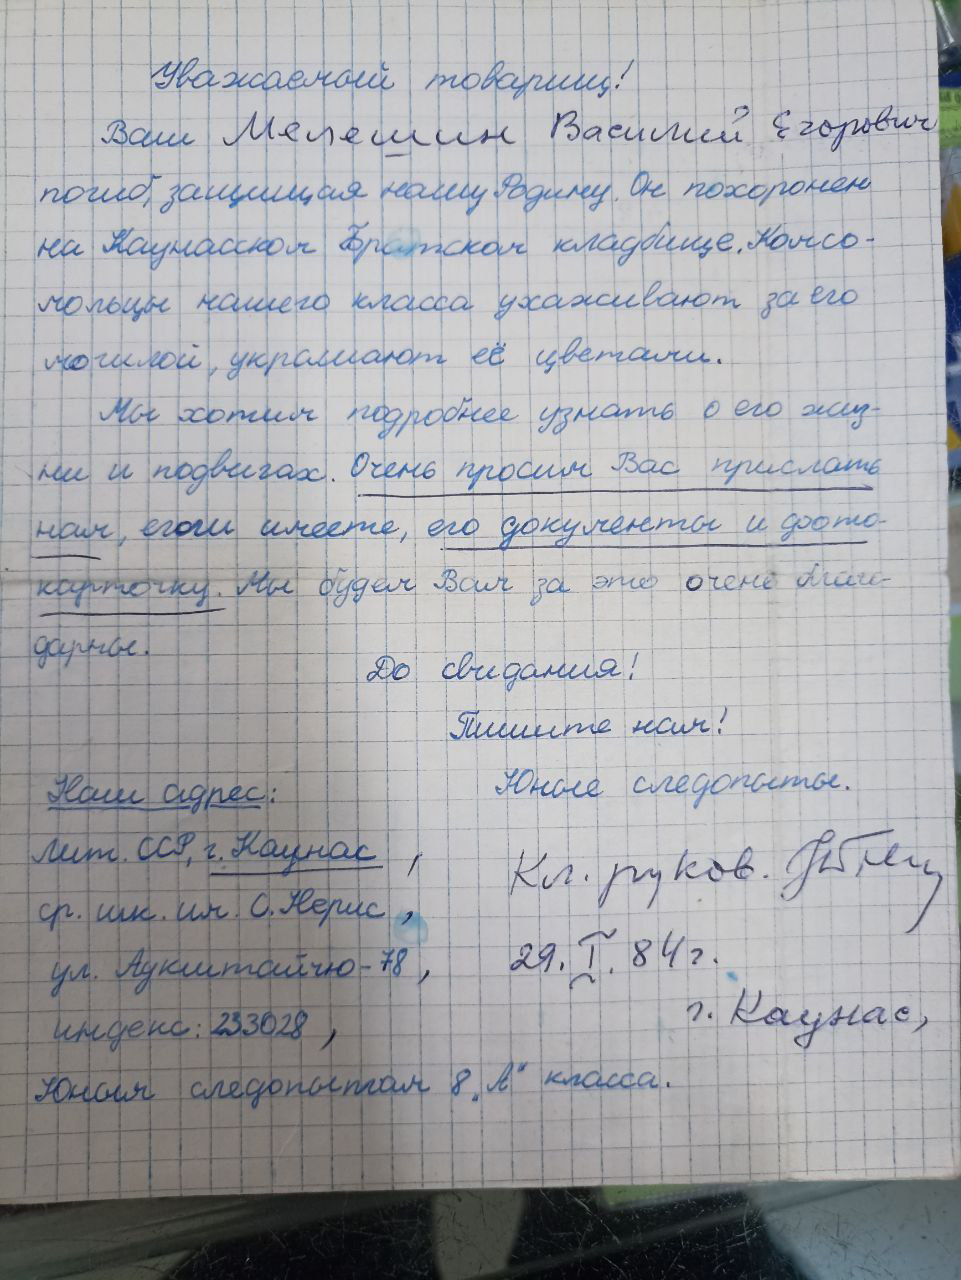 Уважаемый товарищ!
Ваш Мелешин Василий Егорович
погиб, защищая нашу Родину. Он похоронен
на Каунасском Братском кладбище. Комсо-
мольцы нашего класса ухаживают за его
могилой, украшают её цветами.
Мы хотим подробнее узнать о его жиз-
ни и подвигах. Очень просим Вас прислать
нам, если имеете, его документы и фото-
карточку. Мы будем Вам за это очень благо-
дарны.
До свидания!
Пишите нам!
Наш адрес:
Юные следопыты.
Лит. ССР, г. Каунас,
Кл. руков.
ср. шк. им. С. Нерис,
ул. Аукштайчю-78,
29. I. 84 г.
индекс: 233028,
г. Каунас,
Юным следопытам 8 „А" класса.